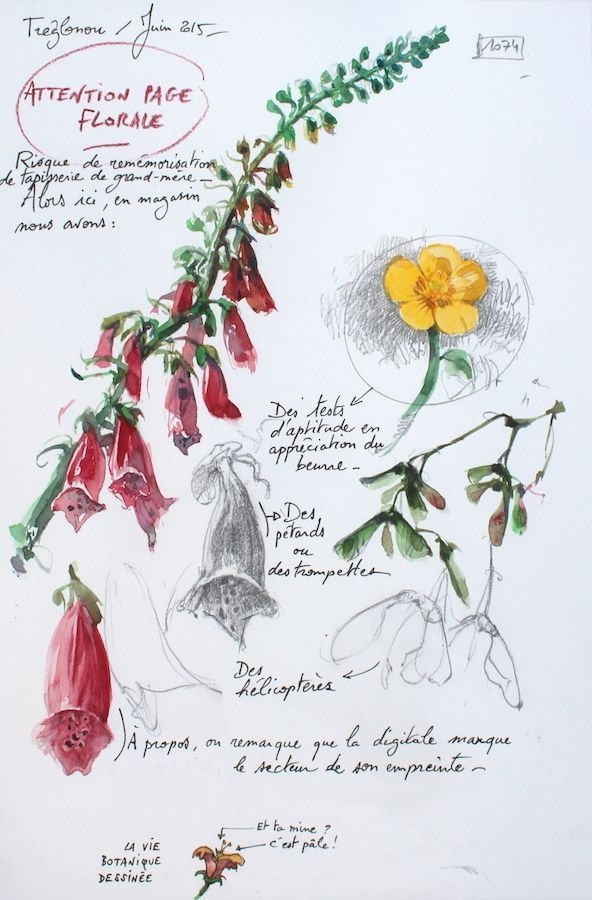 Trézlonou / Juin 2015
1074
ATTENTION PAGE
FLORALE
Risque de remémorisation
de tapisserie de grand-mère_
Alors ici, en magasin
nous avons :
Des tests
d'aptitude en
appréciation du
beurre_
Des
pétards
ou
des trompettes
Des
hélicoptères
À propos, on remarque que la digitale marque
le secteur de son empreinte_
Et ta mine ?
c'est pâle !
LA VIE
BOTANIQUE
DESSINÉE